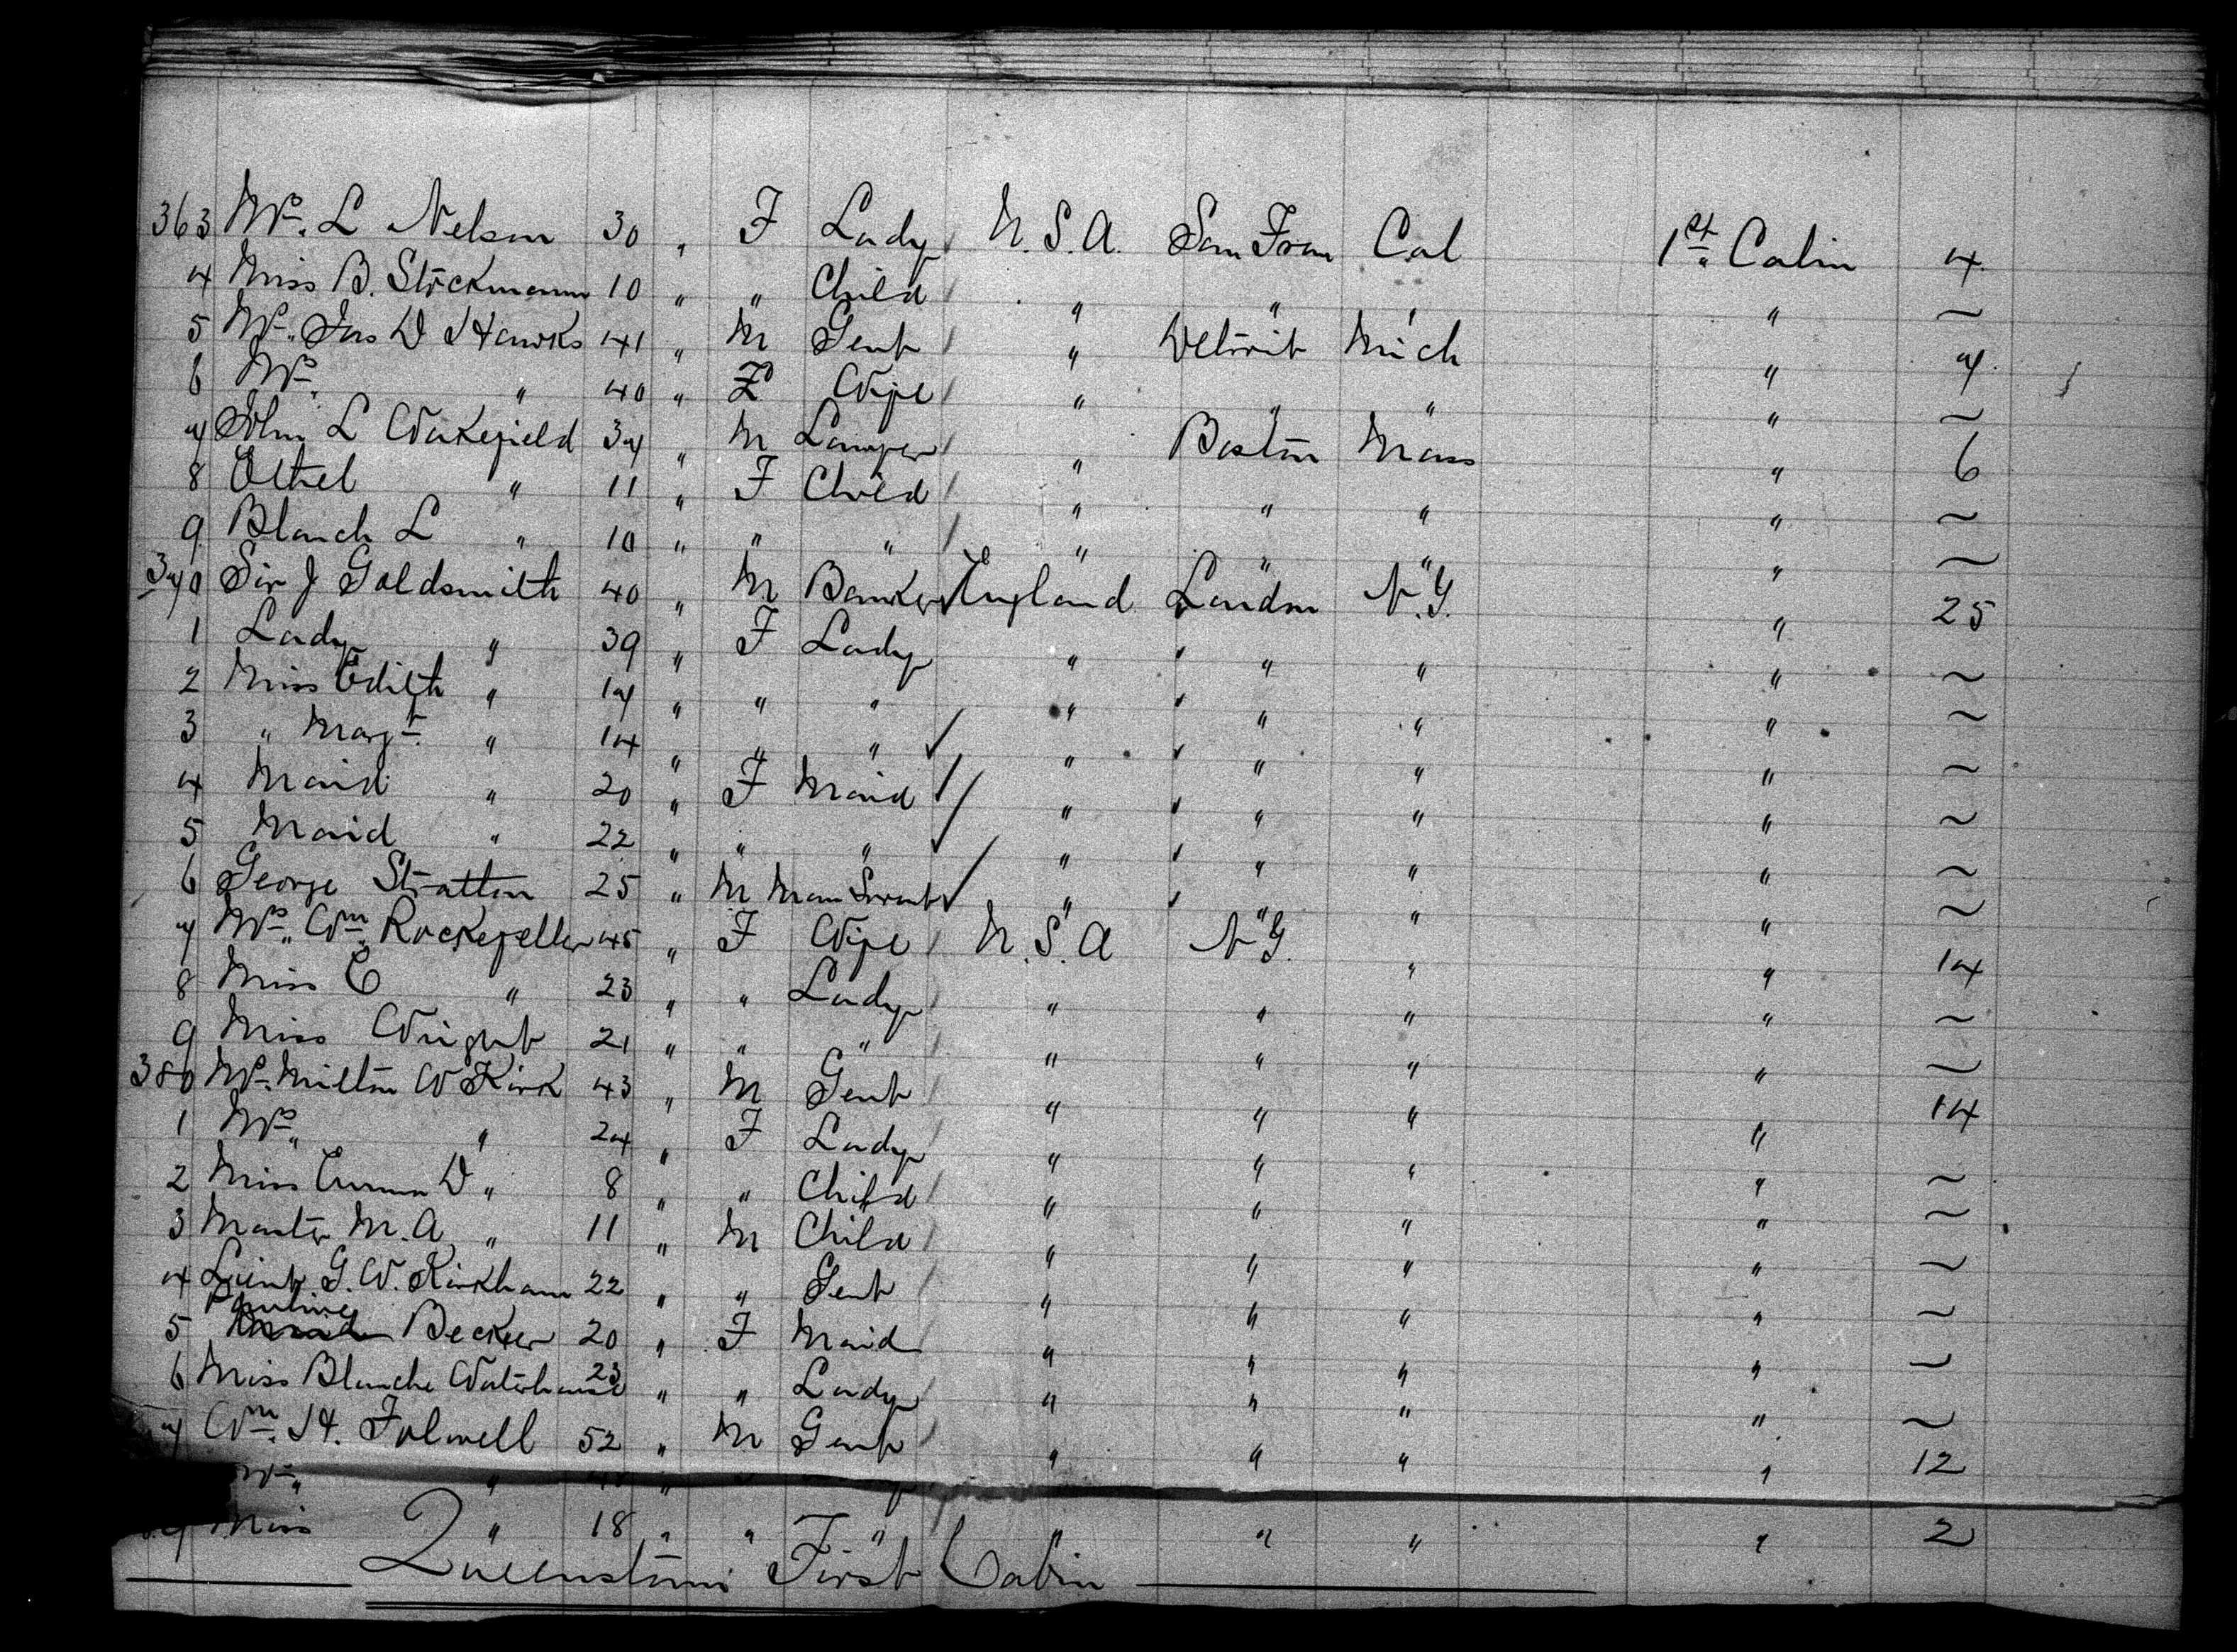 363 Mrs. L Nelson 30 " F Lady U.S.A. San Fran Cal 1st Cabin 4
4 Miss B. Stockmann 10 " " Child " " " " ~
5 Mr. Jas D Hawks 41 " M Gent " Detroit Mich " 7
6 Mrs. " 40 " F Wife " " " " ~
7 John L Wakefield 37 " M Lawyer " Boston Mass " 6
8 Ethel " 11 " F Child " " " " ~
9 Blanch L " 10 " " " " " " " ~
370 Sir J Goldsmith 40 " M Banker England London N.Y. " 25
1 Lady " 39 " F Lady " " " " ~
2 Miss Edith " 17 " " " " " " " ~
3 " Margt. " 14 " " " " " " " ~
4 Maid " 20 " F Maid " " " " ~
5 Maid " 22 " " " " " " " ~
6 George Stratton 25 " M Man Servt " " " " ~
7 Mrs. Wm. Rockefeller 45 " F Wife U.S.A N.Y. " " 14
8 Miss E " 23 " " Lady " " " " ~
9 Miss Wright 21 " " " " " " " ~
380 Mr. Milton W Kirk 43 " M Gent " " " " 14
1 Mrs. " 24 " F Lady " " " " ~
2 Miss Emma D " 8 " " Child " " " " ~
3 Master M.A " 11 " M Child " " " " ~
4 Lieut G.W. Kirkham 22 " " Gent " " " " ~
Pauline
5 Becker 20 " F Maid " " " " ~
6 Miss Blanche Waterhouse 23 " " Lady " " " " ~
7 Wm. H. Folwell 52 " M Gent " " " " 12
Mrs. "
9 Miss " 18 " " " " " " " 2
Queenstown First Cabin